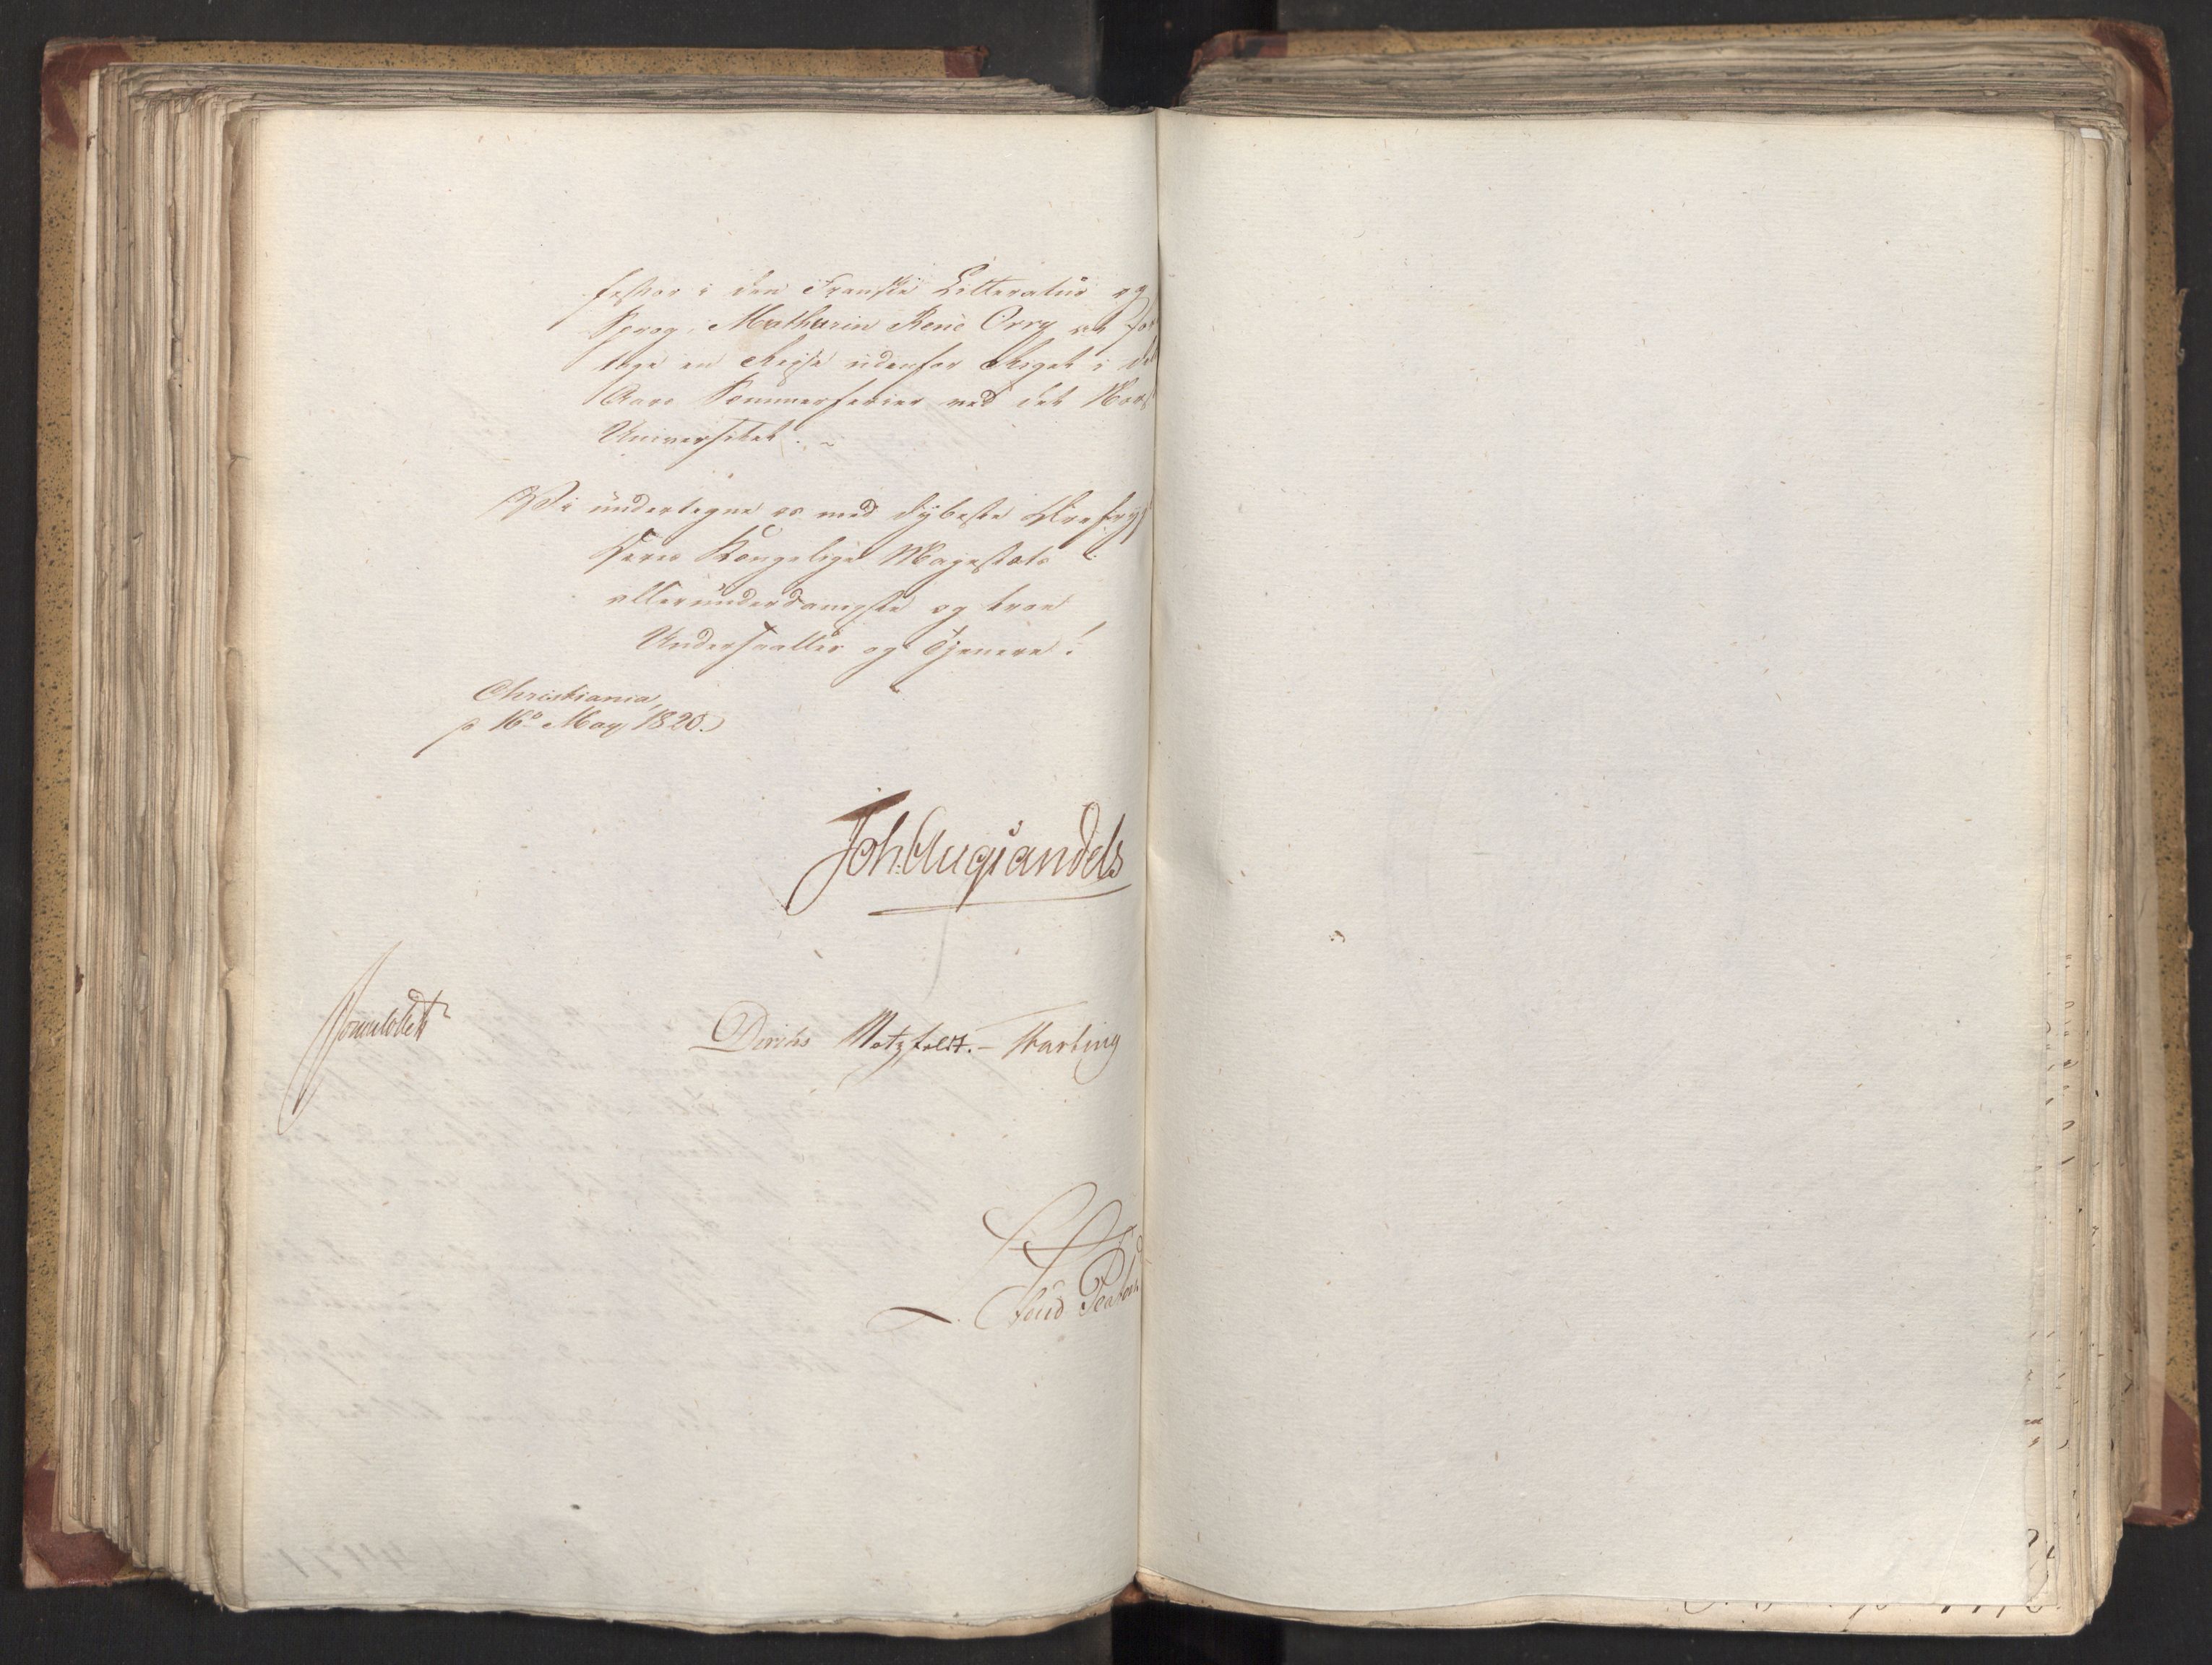 fessor i den Franske Litteratur og
Sprog, Mathurin René Orry at fore
tage en Reise udenfor Riget i dette
Aars Sommerferier ved det Norske
Universitet. ~
Vi undertegne os med dybeste Ærefrygt
Deres Kongelige Majestæts
allerunderdanigste og troe
Undersaatter og Tjenere!
Christiania,
p 16º May 1820.
Joh. Aug. Sandels
Sommerfeldt
Diriks Motzfeldt. – Krebting